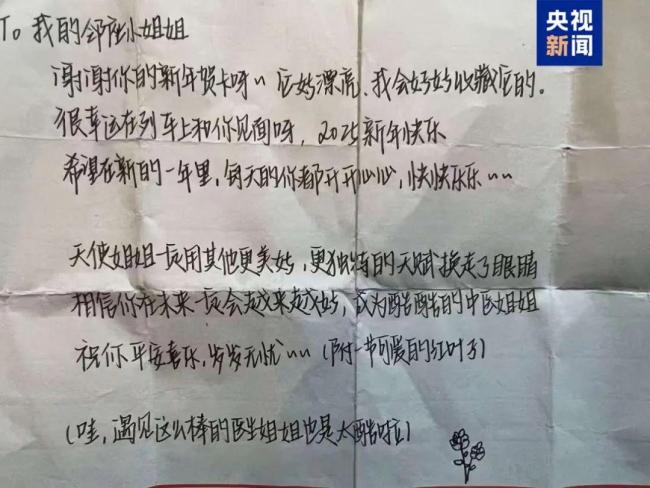 央视
新闻
To 我的邻座小姐姐
谢谢你的新年贺卡呀~~ 它好漂亮、我会好好收藏它的。
很幸运在列车上和你见面呀，2025新年快乐
希望在新的一年里，每天的你都开开心心，快快乐乐~~
天使姐姐一定用其他更美好，更独特的天赋换走了眼睛
相信你在未来一定会越来越好，成为酷酷的中医姐姐
祝你平安喜乐，岁岁无忧~~（附一节可爱的红叶子）
（哇，遇见这么棒的医生姐姐也是太酷啦）